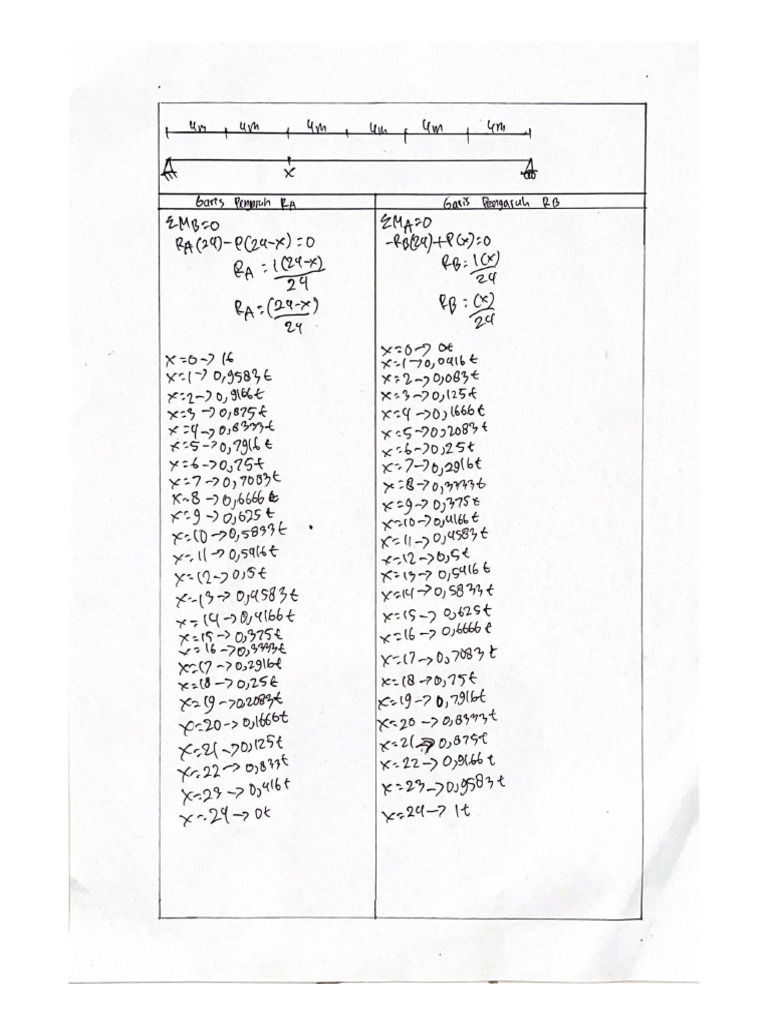 4m 4m 4m 4m 4m 4m
x
Garis Pengaruh RA
ΣMB=0
RA(24)-P(24-x)=0
RA = 1(24-x)
24
RA = (24-x)
24
x=0 → 1t
x=1 → 0,9583t
x=2 → 0,9166t
x=3 → 0,875t
x=4 → 0,8333t
x=5 → 0,7916t
x=6 → 0,75t
x=7 → 0,7083t
x=8 → 0,6666t
x=9 → 0,625t
x=10 → 0,5833t
x=11 → 0,5416t
x=12 → 0,5t
x=13 → 0,4583t
x=14 → 0,4166t
x=15 → 0,375t
x=16 → 0,3333t
x=17 → 0,2916t
x=18 → 0,25t
x=19 → 0,2083t
x=20 → 0,1666t
x=21 → 0,125t
x=22 → 0,833t
x=23 → 0,416t
x=24 → 0t
Garis Pengaruh RB
ΣMA=0
-RB(24)+P(x)=0
RB = 1(x)
24
RB = (x)
24
x=0 → 0t
x=1 → 0,0416t
x=2 → 0,083t
x=3 → 0,125t
x=4 → 0,1666t
x=5 → 0,2083t
x=6 → 0,25t
x=7 → 0,2916t
x=8 → 0,3333t
x=9 → 0,375t
x=10 → 0,4166t
x=11 → 0,4583t
x=12 → 0,5t
x=13 → 0,5416t
x=14 → 0,5833t
x=15 → 0,625t
x=16 → 0,6666t
x=17 → 0,7083t
x=18 → 0,75t
x=19 → 0,7916t
x=20 → 0,8333t
x=21 → 0,875t
x=22 → 0,9166t
x=23 → 0,9583t
x=24 → 1t